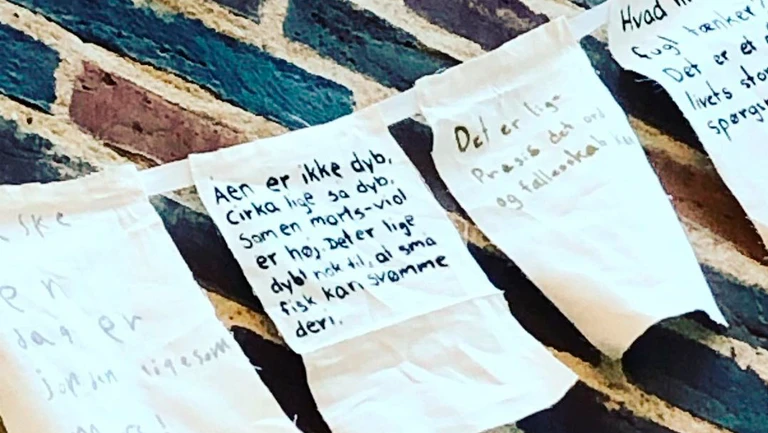 ske
en
dag er
jorden ligesom
Mars!
Aen er ikke dyb,
Cirka lige sa dyb,
Somen marts-viol
er høj. Det er lige
dybt nok til, at små
fisk kan svømme
deri.
Det er lig-
Præsis det ord
og fællesskab
Hvad
fugl tænker,
Det er et
livets stor
spørgs